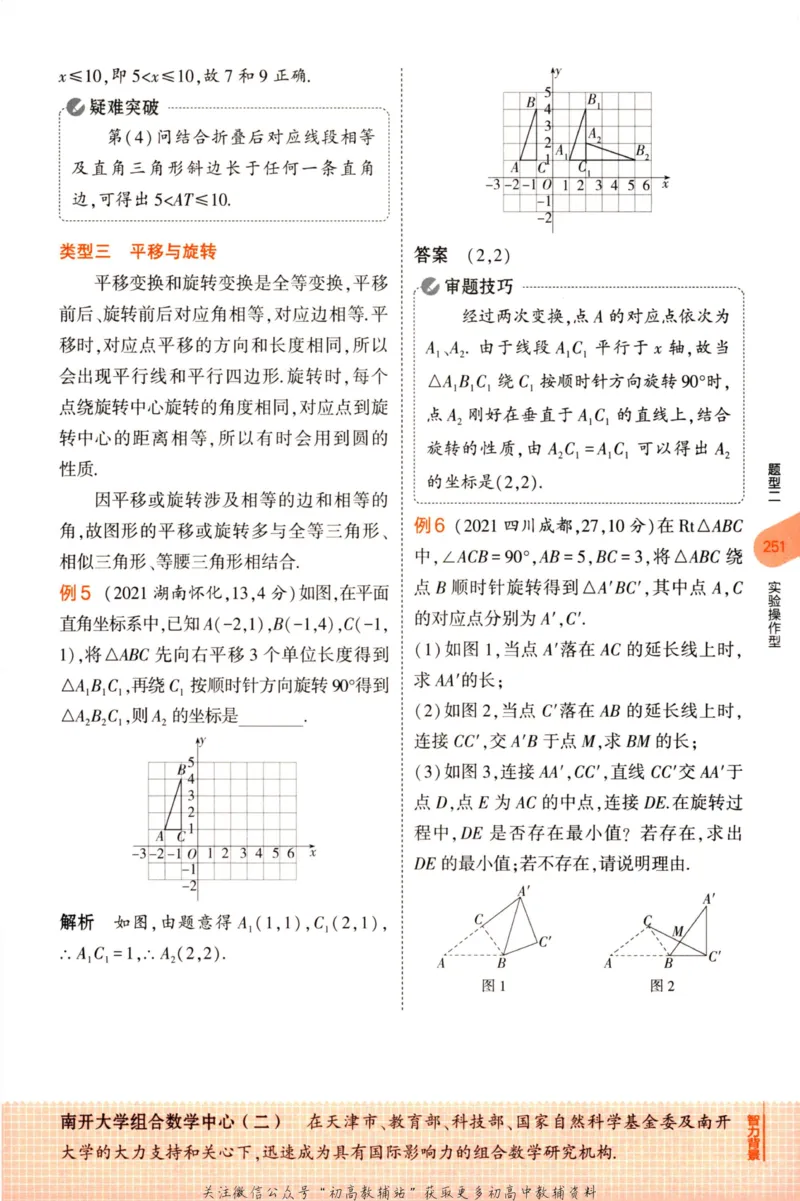 x≤10,即5<x≤10,故7和9正确.
疑难突破
第(4)问结合折叠后对应线段相等
及直角三角形斜边长于任何一条直角
边,可得出5<AT≤10.
类型三 平移与旋转
平移变换和旋转变换是全等变换,平移
前后、旋转前后对应角相等,对应边相等.平
移时,对应点平移的方向和长度相同,所以
会出现平行线和平行四边形.旋转时,每个
点绕旋转中心旋转的角度相同,对应点到旋
转中心的距离相等,所以有时会用到圆的
性质.
因平移或旋转涉及相等的边和相等的
角,故图形的平移或旋转多与全等三角形、
相似三角形、等腰三角形相结合.
例5 (2021湖南怀化,13,4分)如图,在平面
直角坐标系中,已知A(-2,1),B(-1,4),C(-1,
1),将△ABC先向右平移3个单位长度得到
△A₁B₁C₁,再绕C₁按顺时针方向旋转90°得到
△A₂B₂C₁,则A₂的坐标是________.
y
5
B 4
3
2
A C 1
-3 -2 -1 O 1 2 3 4 5 6 x
-1
-2
解析 如图,由题意得A₁(1,1),C₁(2,1),
∴A₁C₁=1,∴A₂(2,2).
y
5
B 4 B₁
3
2 A₁ A₂ B₂
A C 1 C₁
-3 -2 -1 O 1 2 3 4 5 6 x
-1
-2
答案 (2,2)
审题技巧
经过两次变换,点A的对应点依次为
A₁、A₂.由于线段A₁C₁平行于x轴,故当
△A₁B₁C₁绕C₁按顺时针方向旋转90°时,
点A₂刚好在垂直于A₁C₁的直线上,结合
旋转的性质,由A₂C₁=A₁C₁可以得出A₂
的坐标是(2,2).
例6 (2021四川成都,27,10分)在Rt△ABC
中,∠ACB=90°,AB=5,BC=3,将△ABC绕
点B顺时针旋转得到△A′BC′,其中点A,C
的对应点分别为A′,C′.
(1)如图1,当点A′落在AC的延长线上时,
求AA′的长;
(2)如图2,当点C′落在AB的延长线上时,
连接CC′,交A′B于点M,求BM的长;
(3)如图3,连接AA′,CC′,直线CC′交AA′于
点D,点E为AC的中点,连接DE.在旋转过
程中,DE是否存在最小值?若存在,求出
DE的最小值;若不存在,请说明理由.
A′
C
C′
A B
图1
A′
C
M
A B C′
图2
题型二
251
实验操作型
南开大学组合数学中心(二) 在天津市、教育部、科技部、国家自然科学基金委及南开
大学的大力支持和关心下,迅速成为具有国际影响力的组合数学研究机构.
智力背景
关注微信公众号“初高教辅站”获取更多初高中教辅资料